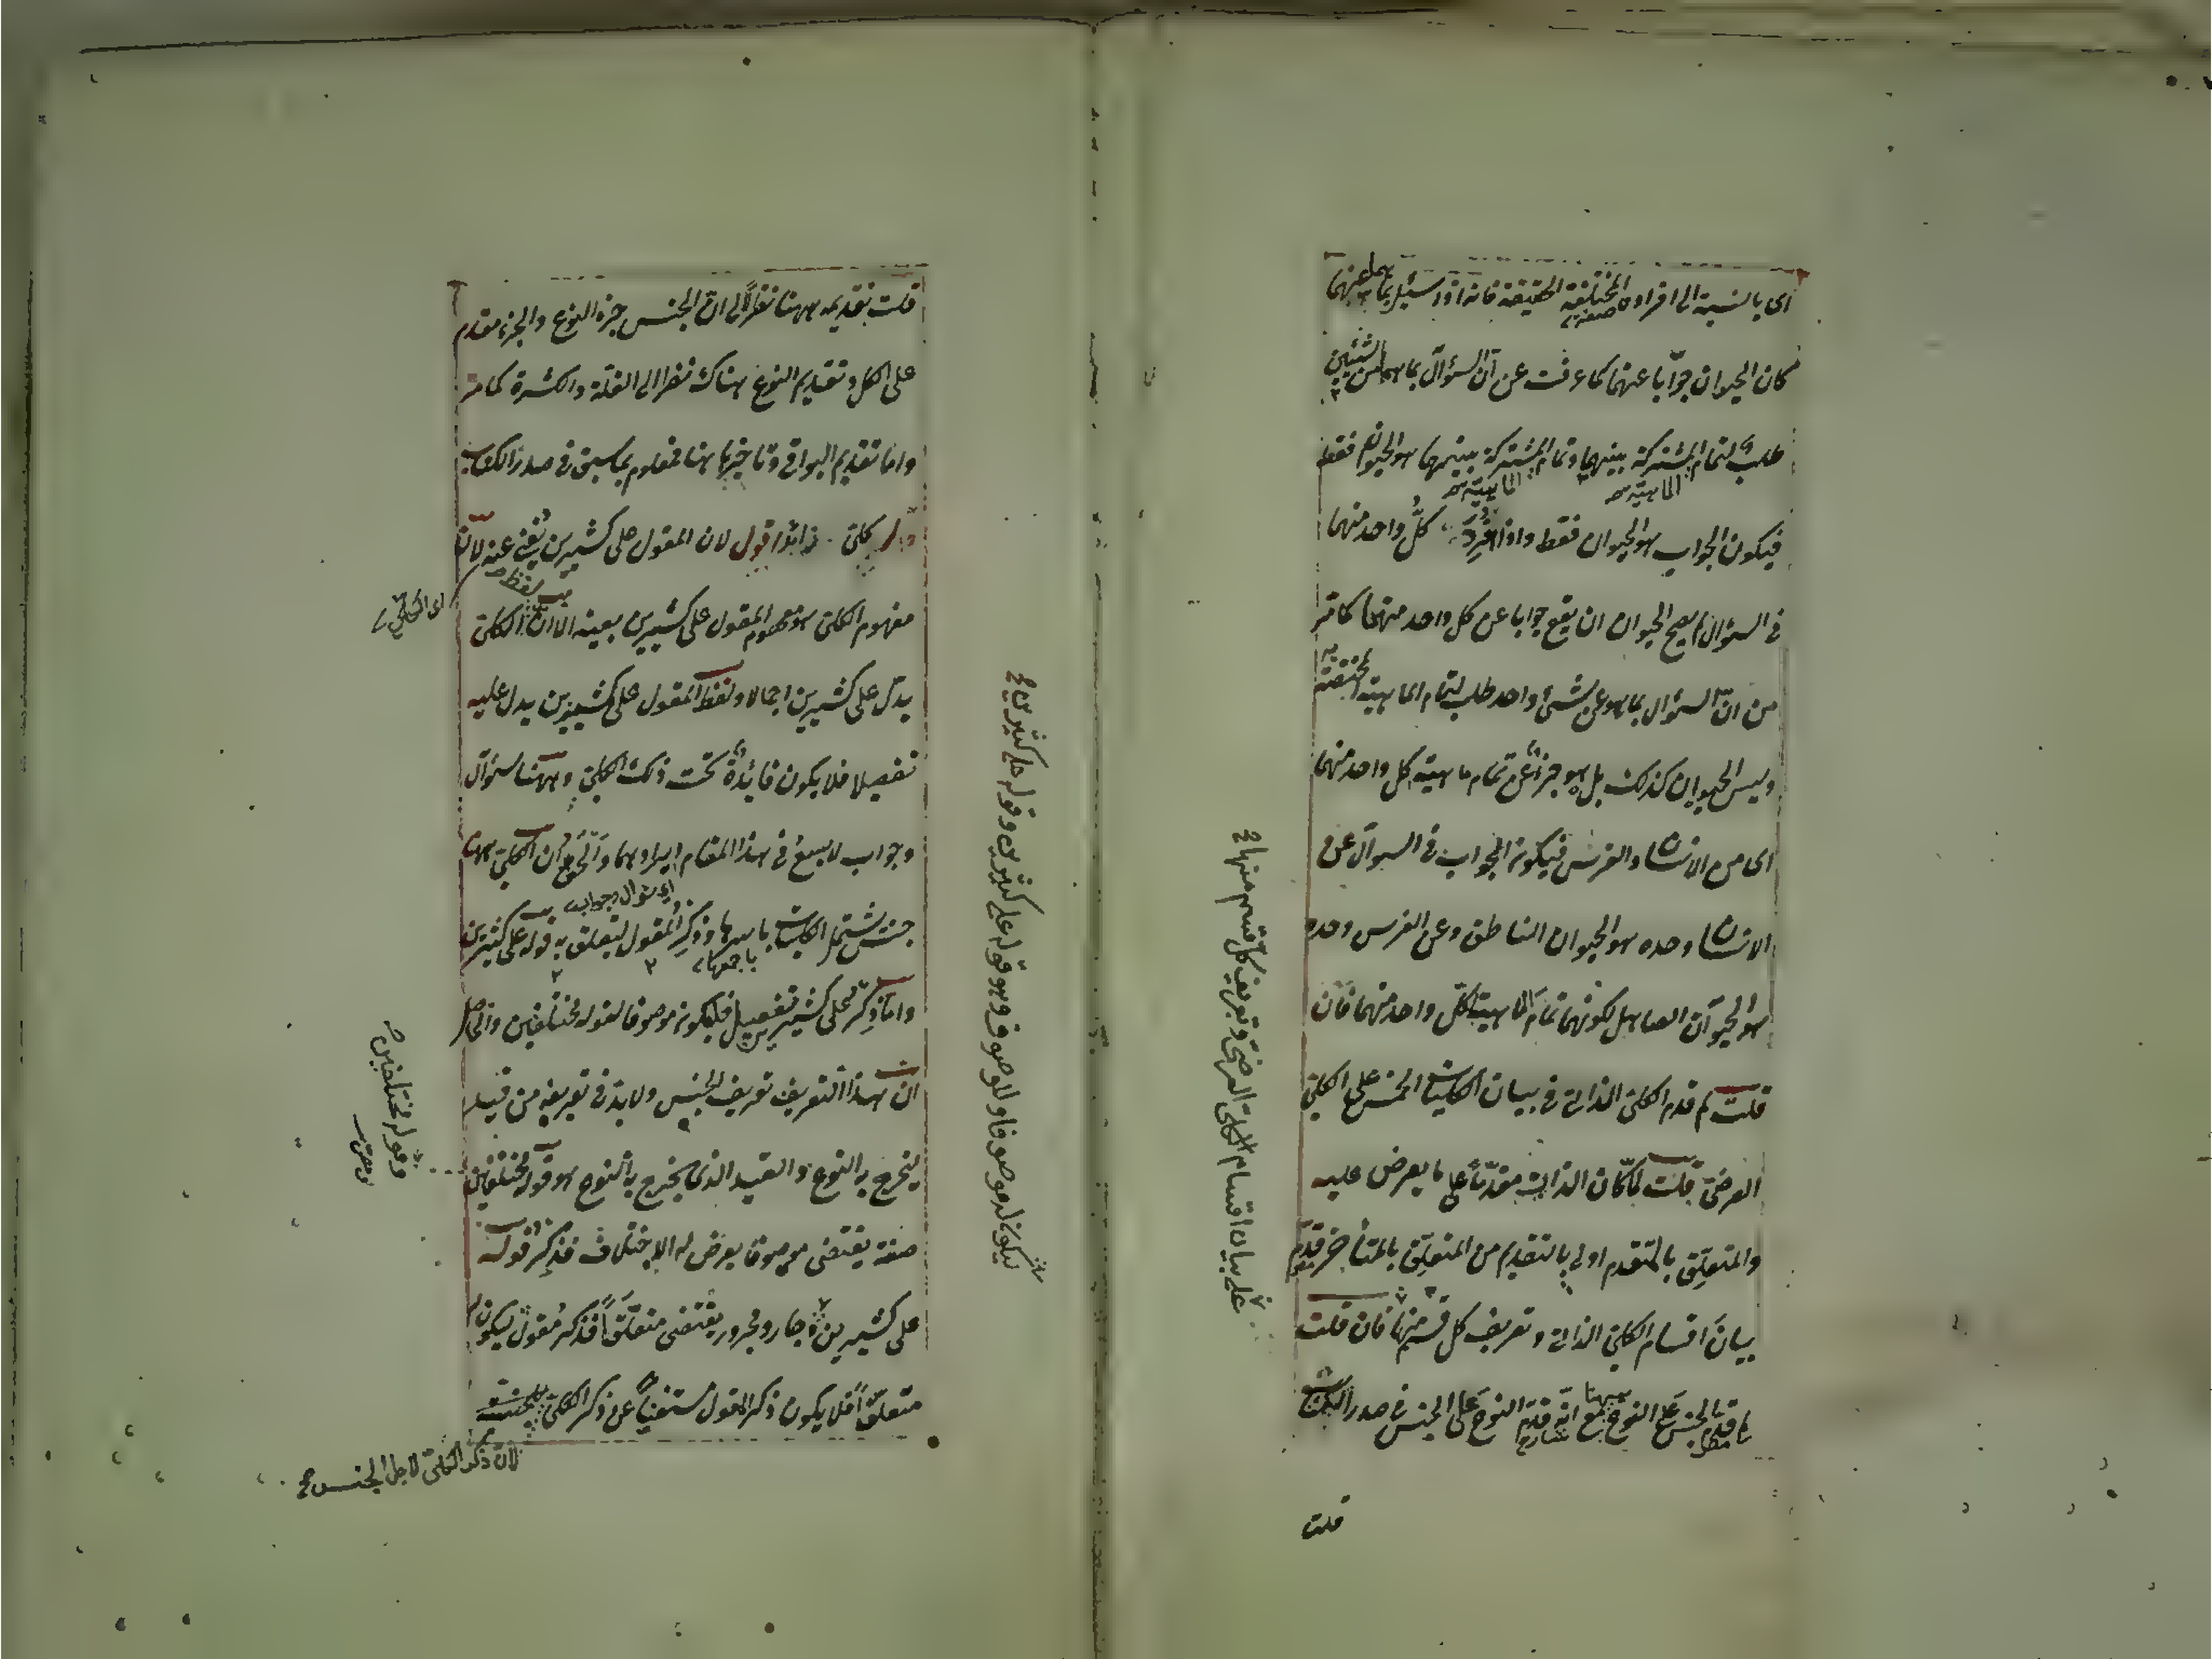 اى بالنسبة الى افراده المختلفة الحقيقة فانه اذا سئل بما هما عنهما
كان الحيوان جوابا عنهما كما عرفت عن ان السؤال بما هما عن الشيئين
طلب لتمام المشتركة بينهما وتمام المشتركة بينهما هو الحيوان فقط
الماهية الماهية
فيكون الجواب هو الحيوان فقط واذا افرد كل واحد منهما
فى السؤال لم يصح الحيوان ان يقع جوابا عن كل واحد منهما كما مر
من ان السؤال بما هو عن شئ واحد طلب لتمام الماهية المختصة به
وليس الحيوان كذلك بل هو جزء عن تمام ماهية كل واحد منهما
اى من الانسان والفرس فيكون الجواب فى السوال عن
الانسان وحده هو الحيوان الناطق وعن الفرس وحده
هو الحيوان الصاهل لكونهما تمام الماهية لكل واحد منهما فان
قلت لم قدم الكلى الذاتى فى بيان الكليات الخمس على الكلى
العرضى قلت لما كان الذات مقدما على ما يعرض عليه
والمتعلق بالمتقدم اولى بالتقديم من المتعلق بالمتأخر قدم
بيان اقسام الكلى الذاتى وتعريف كل قسم منها فان قلت
لم قدم الجنس على النوع ههنا مع انه قدم النوع على الجنس فى صدر الكتاب
قلت
على بيان اقسام الكلى العرضى وتعريف كل قسم منها
قلت تقديمه ههنا نظرا الى ان الجنس جزء النوع والجزء مقدم
على الكل وتقديم النوع هناك نظرا الى القلة والكثرة كما مر
واما تقديم البواقى وتاخيرها هنا فمعلوم بما سبق فى صدر الكتاب
كلى زائد اقول لان المقول على كثيرين يغنى عنه لان
لفظ
اى الكلى
مفهوم الكلى هو مفهوم المقول على كثيرين بعينه الا ان الكلى
يدل على كثيرين اجمالا ولفظ المقول على كثيرين يدل عليه
تفصيلا فلا يكون فائدة تحت ذلك الكلى وههنا سؤال
وجواب لا يسع فى هذا المقام ايرادهما والحق ان الكلى ههنا
اى سؤال وجواب
جنس يشتمل الكليات باسرها وذكر المقول ليتعلق به قوله على كثيرين
باجمعها
وانما ذكر على كثيرين تفصيل فيكون موصوفا لقوله مختلفين والحاصل
ان هذا التعريف تعريف الجنس ولا بد فى تعريفه من قيد
يخرج به النوع والقيد الذى يخرج به النوع هو قوله مختلفين
وقوله مختلفين
صفة يقتضى موصوفا يعرض له الاختلاف فذكر قوله
على كثيرين وجار ومجرور يقتضى متعلقا فذكر مقول ليكون
متعلقا فلا يكون ذكر المقول مستغنيا عن ذكر الكلى
لان ذكر الكلى لاجل الجنس
ليكون له موصوفا وللموصوف وهو قوله على كثيرين وقوله على كثيرين